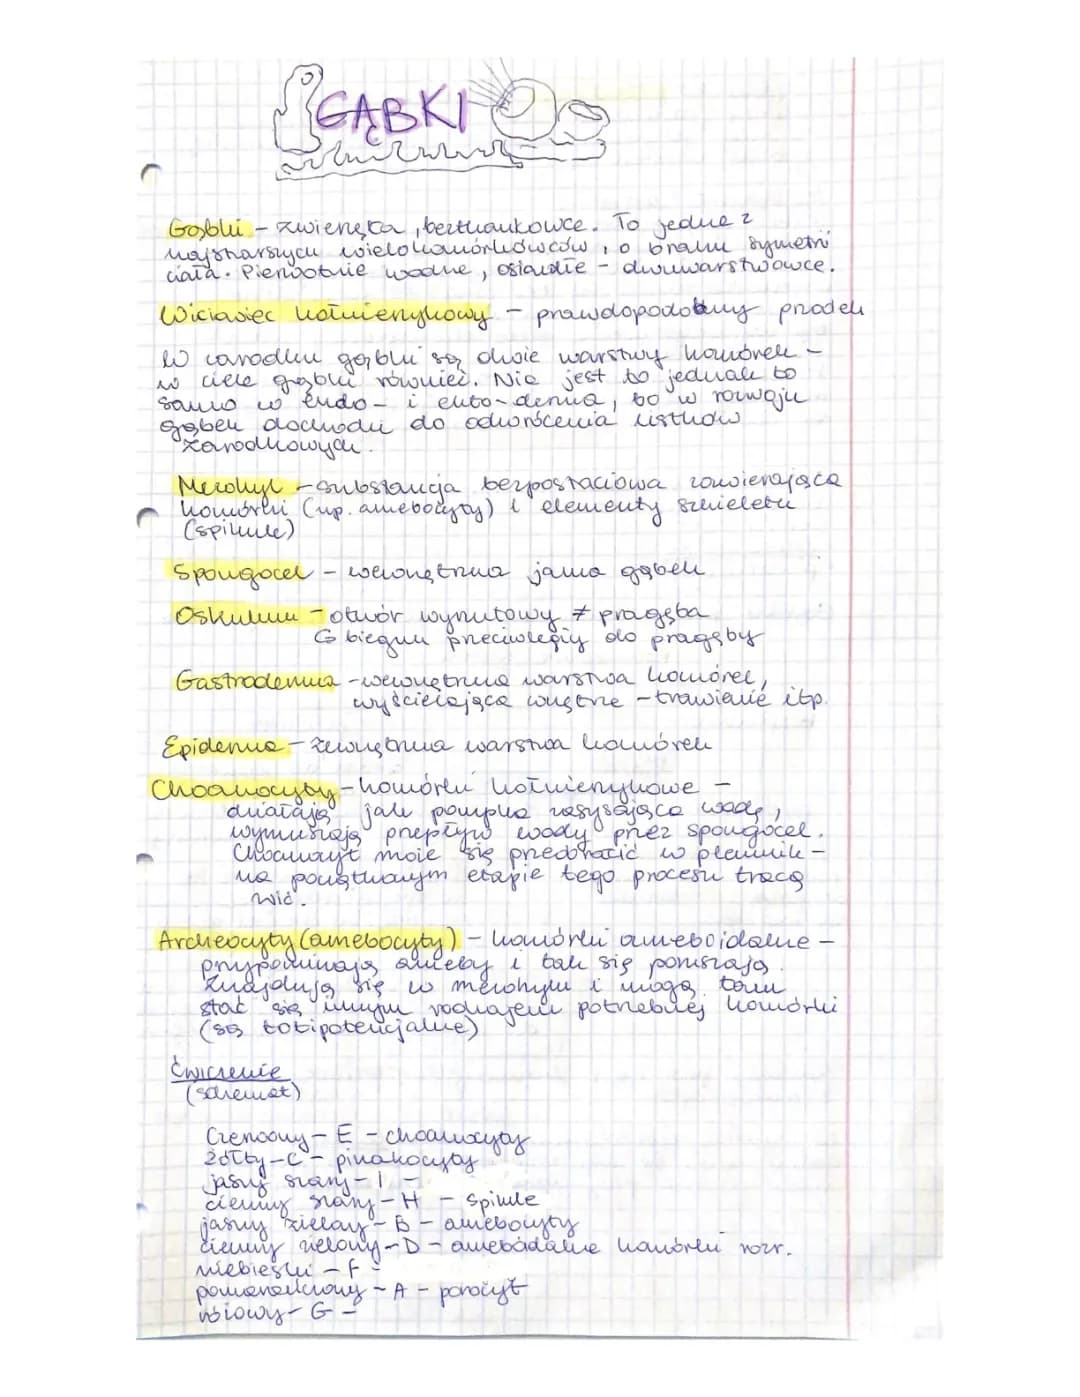 GĄBKI
Gąbki - zwierzęta, beztkankowce. To jedne z
najstarszych wielokomórkowców, o braku symetrii
ciała. Pierwotnie wodne, osiadłe - dwuwarstwowce.
Wiciowiec kołnierzykowy - prawdopodobny przodek
W zarodku gąbki są dwie warstwy komórek -
w ciele gąbki również. Nie jest to jednak to
samo co endo- i ekto-derma, bo w rozwoju
gąbek dochodzi do odwrócenia listków
zarodkowych.
Mezohyl - substancja bezpostaciowa zawierająca
komórki (np. amebocyty) i elementy szkieletu
(spikule)
Spongocel - wewnętrzna jama gąbek
Oskulum - otwór wyrzutowy ≠ pragęba
↳ biegun przeciwległy do pragęby
Gastroderma - wewnętrzna warstwa komórek,
wyścielająca wnętrze - trawienie itp.
Epiderma - zewnętrzna warstwa komórek
Choanocyty - komórki kołnierzykowe -
działają jak pompka zasysająca wodę,
wymuszają przepływ wody przez spongocel.
Choanocyt może się przedostać w plemnik -
na początkowym etapie tego procesu tracą
wić.
Archeocyty (amebocyty) - komórki ameboidalne -
przypominają ameby i tak się poruszają.
Znajdują się w mezohylu i mogą tam
stać się innym rodzajem potrzebnej komórki
(są totipotencjalne)
Ćwiczenie
(schemat)
Czerwony - E - choanocyty
żółty - C - pinakocyty
jasny szary - I -
ciemny szary - H - spikule
jasny zielony - B - amebocyty
ciemny zielony - D - ameboidalne komórki rozr.
niebieski - F -
pomarańczowy - A - porocyt
różowy - G -